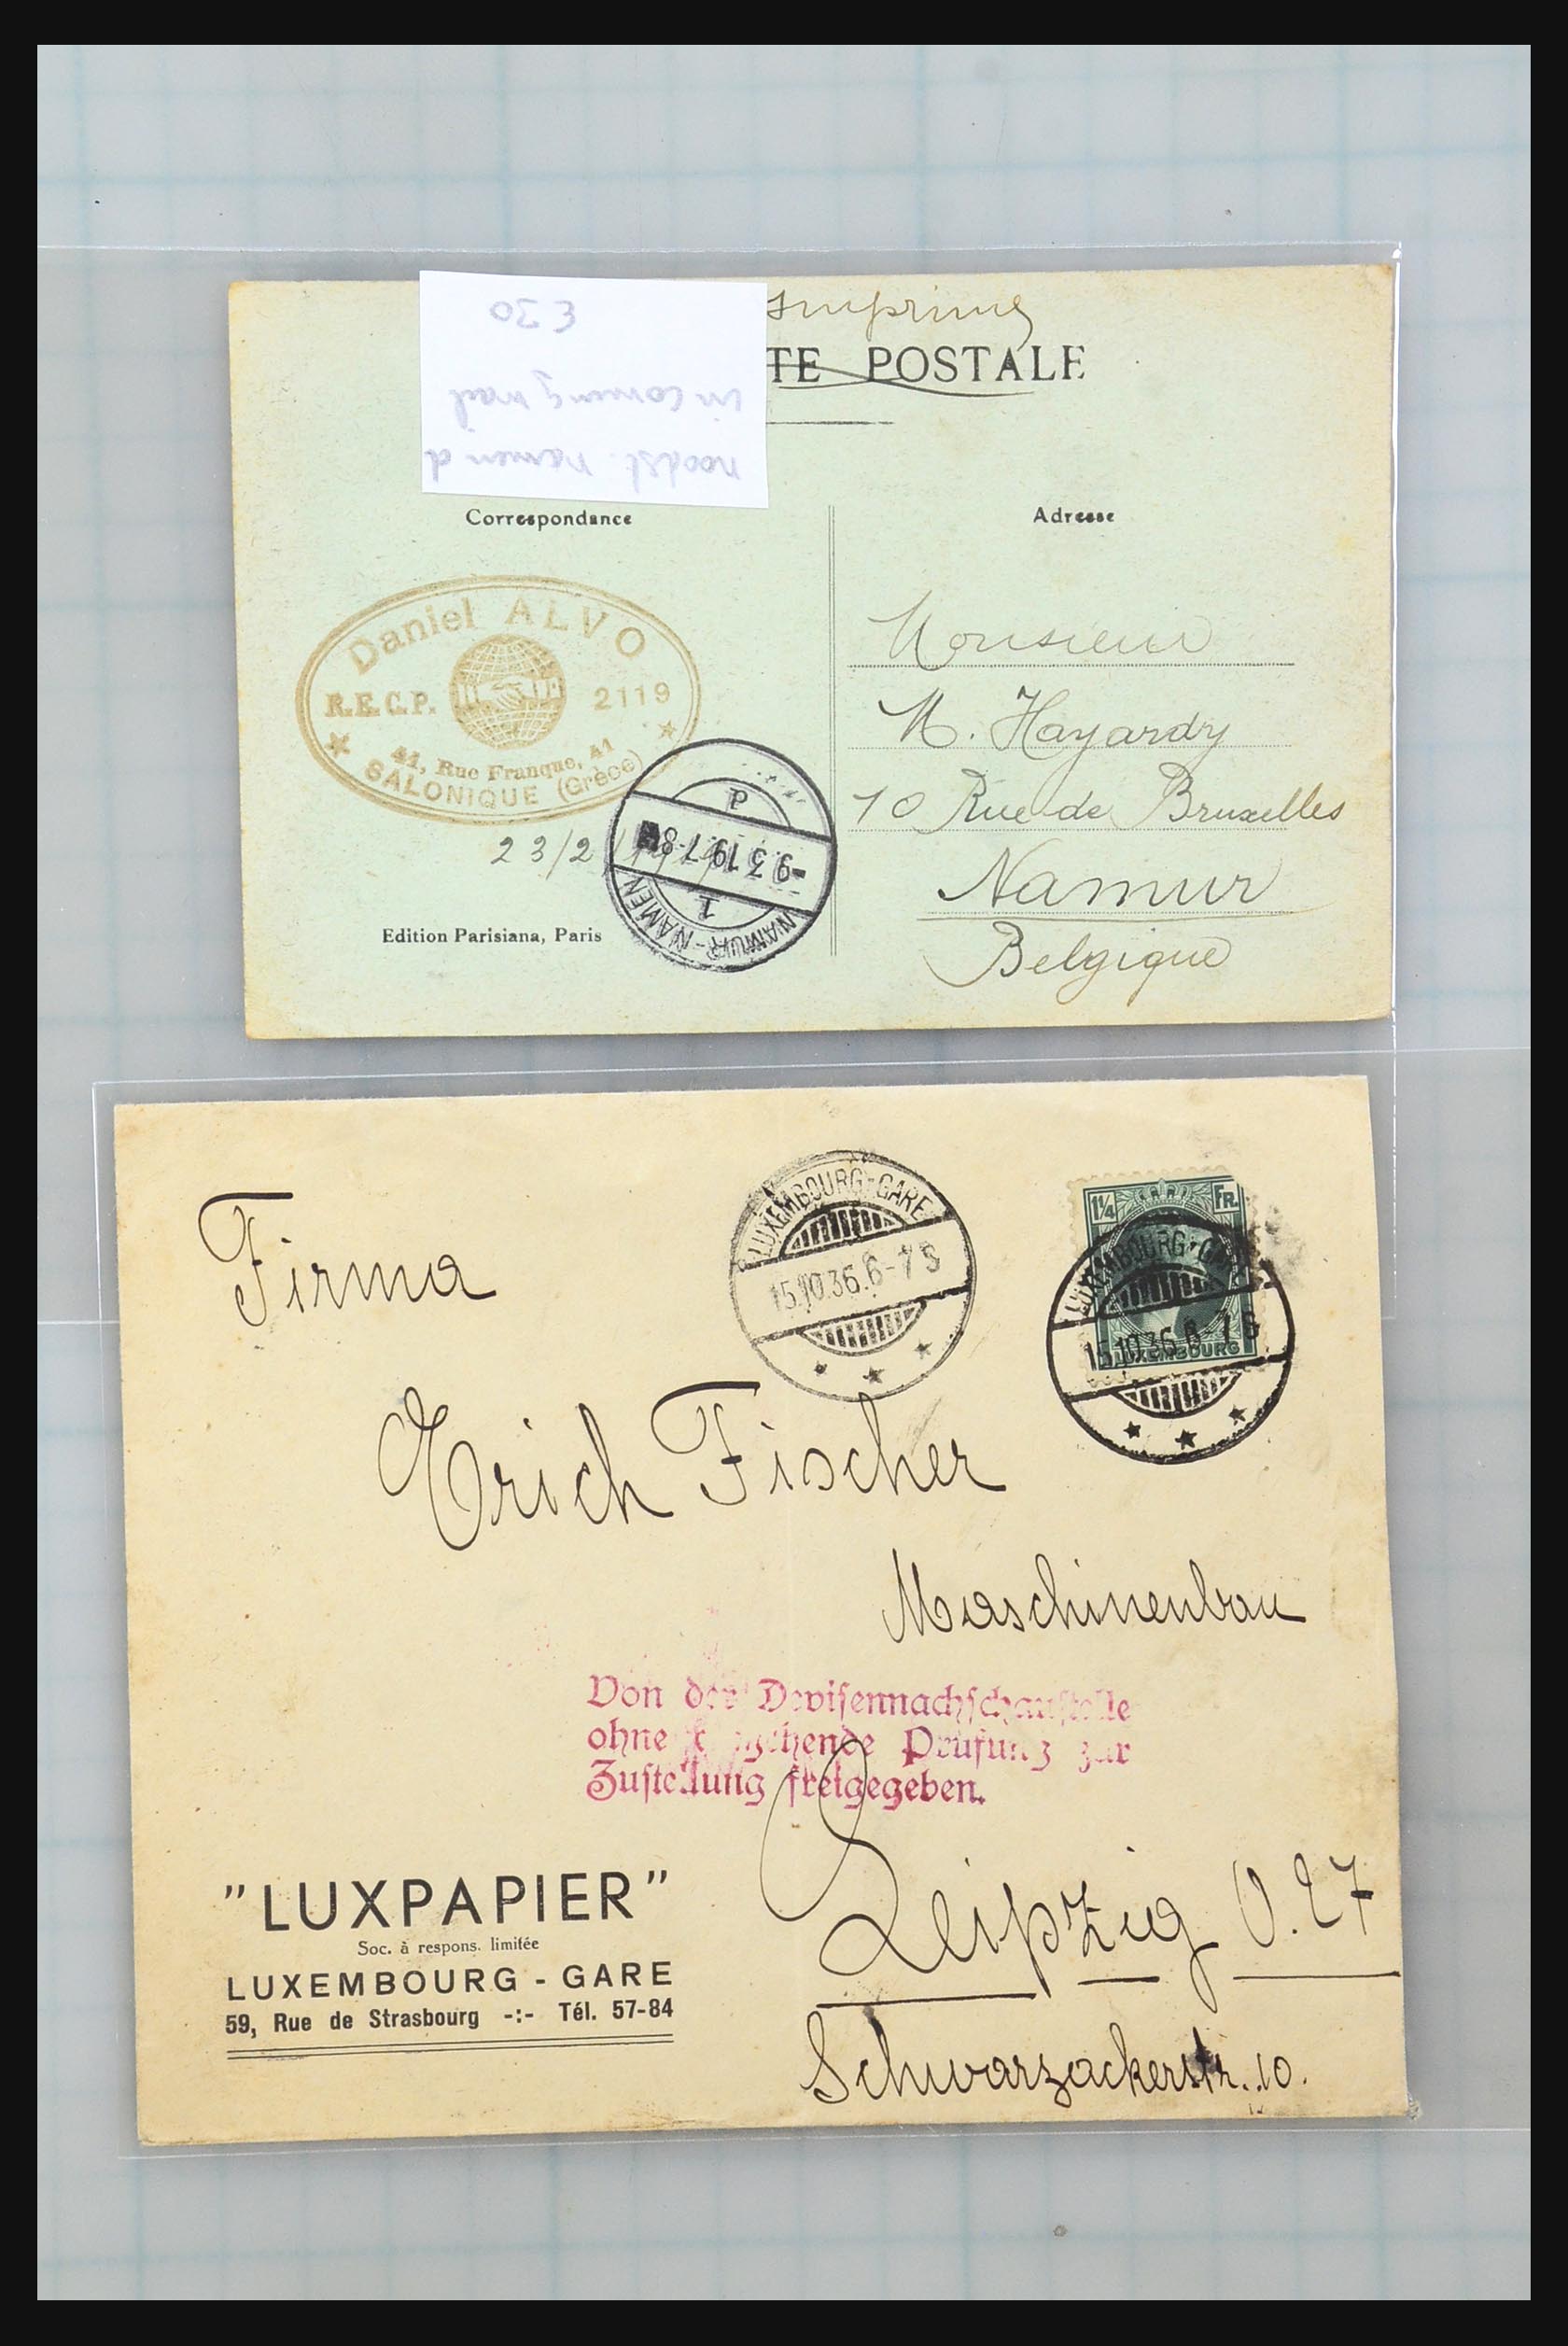 imprimé
TE POSTALE
€30
in coming mail
noodst. namen d
Correspondance
Adresse
Daniel ALVO
R.E.C.P. 2119
41, Rue Franque, 41
SALONIQUE (Grèce)
23/2
P
-9.3.19.7-8
1
NAMUR-NAMEN
Edition Parisiana, Paris
Monsieur
M. Hayardy
10 Rue de Bruxelles
Namur
Belgique
LUXEMBOURG-GARE
15.10.36.6-7 S
1¼ FR.
LUXEMBOURG-GARE
15.10.36.6-7 S
LUXEMBOURG
Firma
Erich Fischer
Maschinenbau
Von der Devisennachschaustelle
ohne Prüfung zur
Zustellung freigegeben.
"LUXPAPIER"
Soc. à respons. limitée
LUXEMBOURG - GARE
59, Rue de Strasbourg -:- Tél. 57-84
Leipzig O.27
Schwarzackerstr. 10.